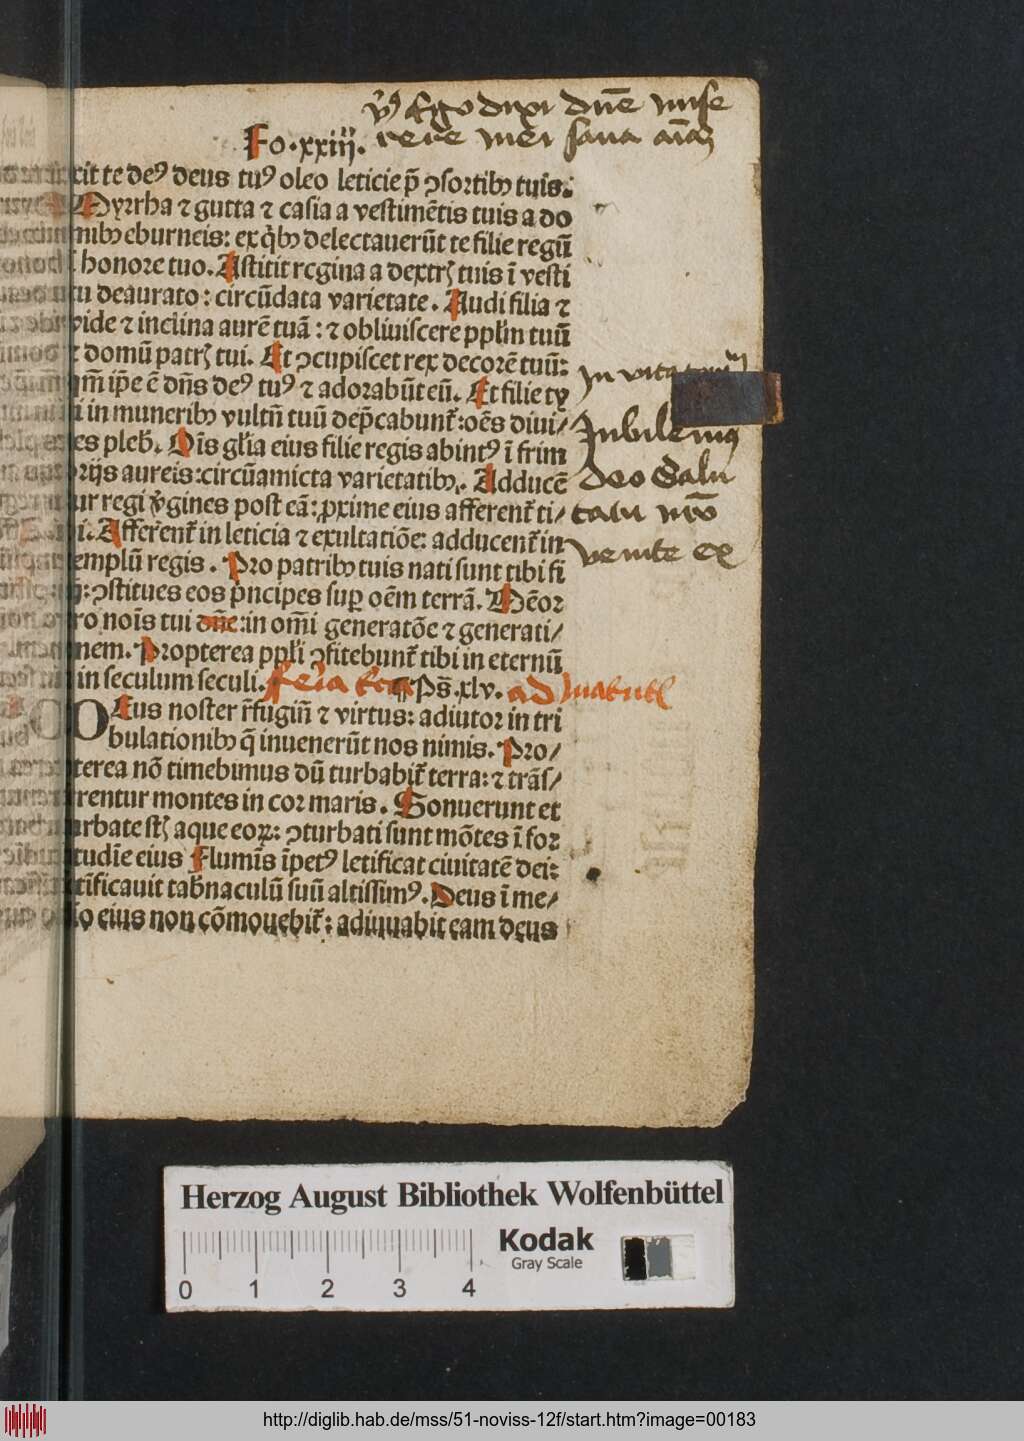 v̉ꝰ Ego dixi dn̄e mise
rere mei sana aīaȝ
Fo.xxiij.
xit te deꝰ deus tuꝰ oleo leticie p̄ ↄsortibꝫ tuis.
Myrrha ⁊ gutta ⁊ casia a vestimētis tuis a do
nibꝫ eburneis: ex q̇bꝫ delectauerūt te filie regū
honore tuo. Astitit regina a dextrꝭ tuis ī vesti
tu deaurato: circūdata varietate. Audi filia ⁊
vide ⁊ inclina aurē tuā: ⁊ obliuiscere ppl̄m tuū
⁊ domū patrꝭ tui. Et ↄcupiscet rex decorē tuū:
qm̄ ip̄e ē dn̄s deꝰ tuꝰ ⁊ adorabūt eū. Et filie ty
ri in muneribꝫ vultū tuū dep̄cabunt᷑: oēs diui/
tes pleb̄. Oīs gl̄ia eius filie regis abintꝰ ī frim
brijs aureis: circūamicta varietatibꝫ. Adducē
tur regi v̓gines post eā: ꝓxime eius afferent᷑ ti/
bi. Afferent᷑ in leticia ⁊ exultatiōe: adducent᷑ in
templū regis. Pro patribꝫ tuis nati sunt tibi fi
lij: ↄstitues eos p̓ncipes suꝑ oēm terrā. Mēor
ero noīs tui dn̄e: in om̄i generatōe ⁊ generati/
onem. Propterea ppl̄i ↄfitebunt᷑ tibi in eternū
⁊ in seculum seculi. feria Ps̄.xlv. ad matutī
DEus noster r̄fugiū ⁊ virtus: adiutor in tri
bulationibꝫ q̄ inuenerūt nos nimis. Pro/
pterea nō timebimus dū turbabit᷑ terra: ⁊ trās/
ferentur montes in cor maris. Sonuerunt et
turbate st̄ aque eoꝝ: ↄturbati sunt mōtes ī for
titudīe eius Flumīs īpetꝰ letificat ciuitatē dei:
sctīficauit tab̓naculū suū altissimꝰ. Deus ī me/
dio eius non cōmouebit᷑: adiuuabit eam deus
In
Jubilemus
deo salu
tari nr̄o
venite ex
Herzog August Bibliothek Wolfenbüttel
Kodak
Gray Scale
0 1 2 3 4
http://diglib.hab.de/mss/51-noviss-12f/start.htm?image=00183